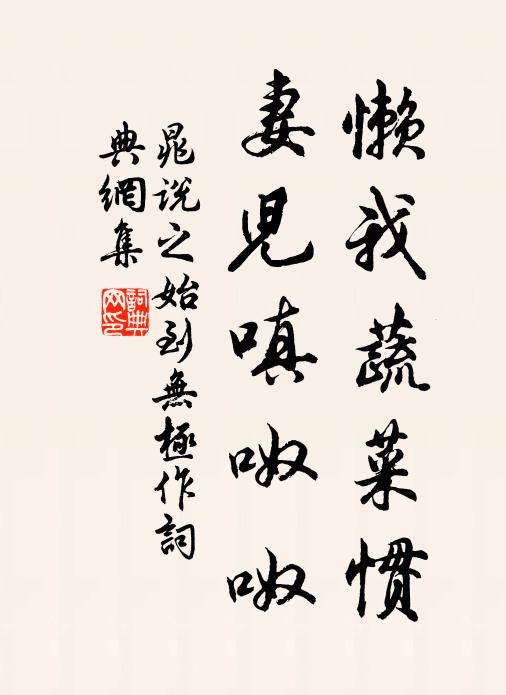 懒我蔬菜惯
妻儿嗔呶呶
晁说之始到無極作詞
典網集
詞典网印